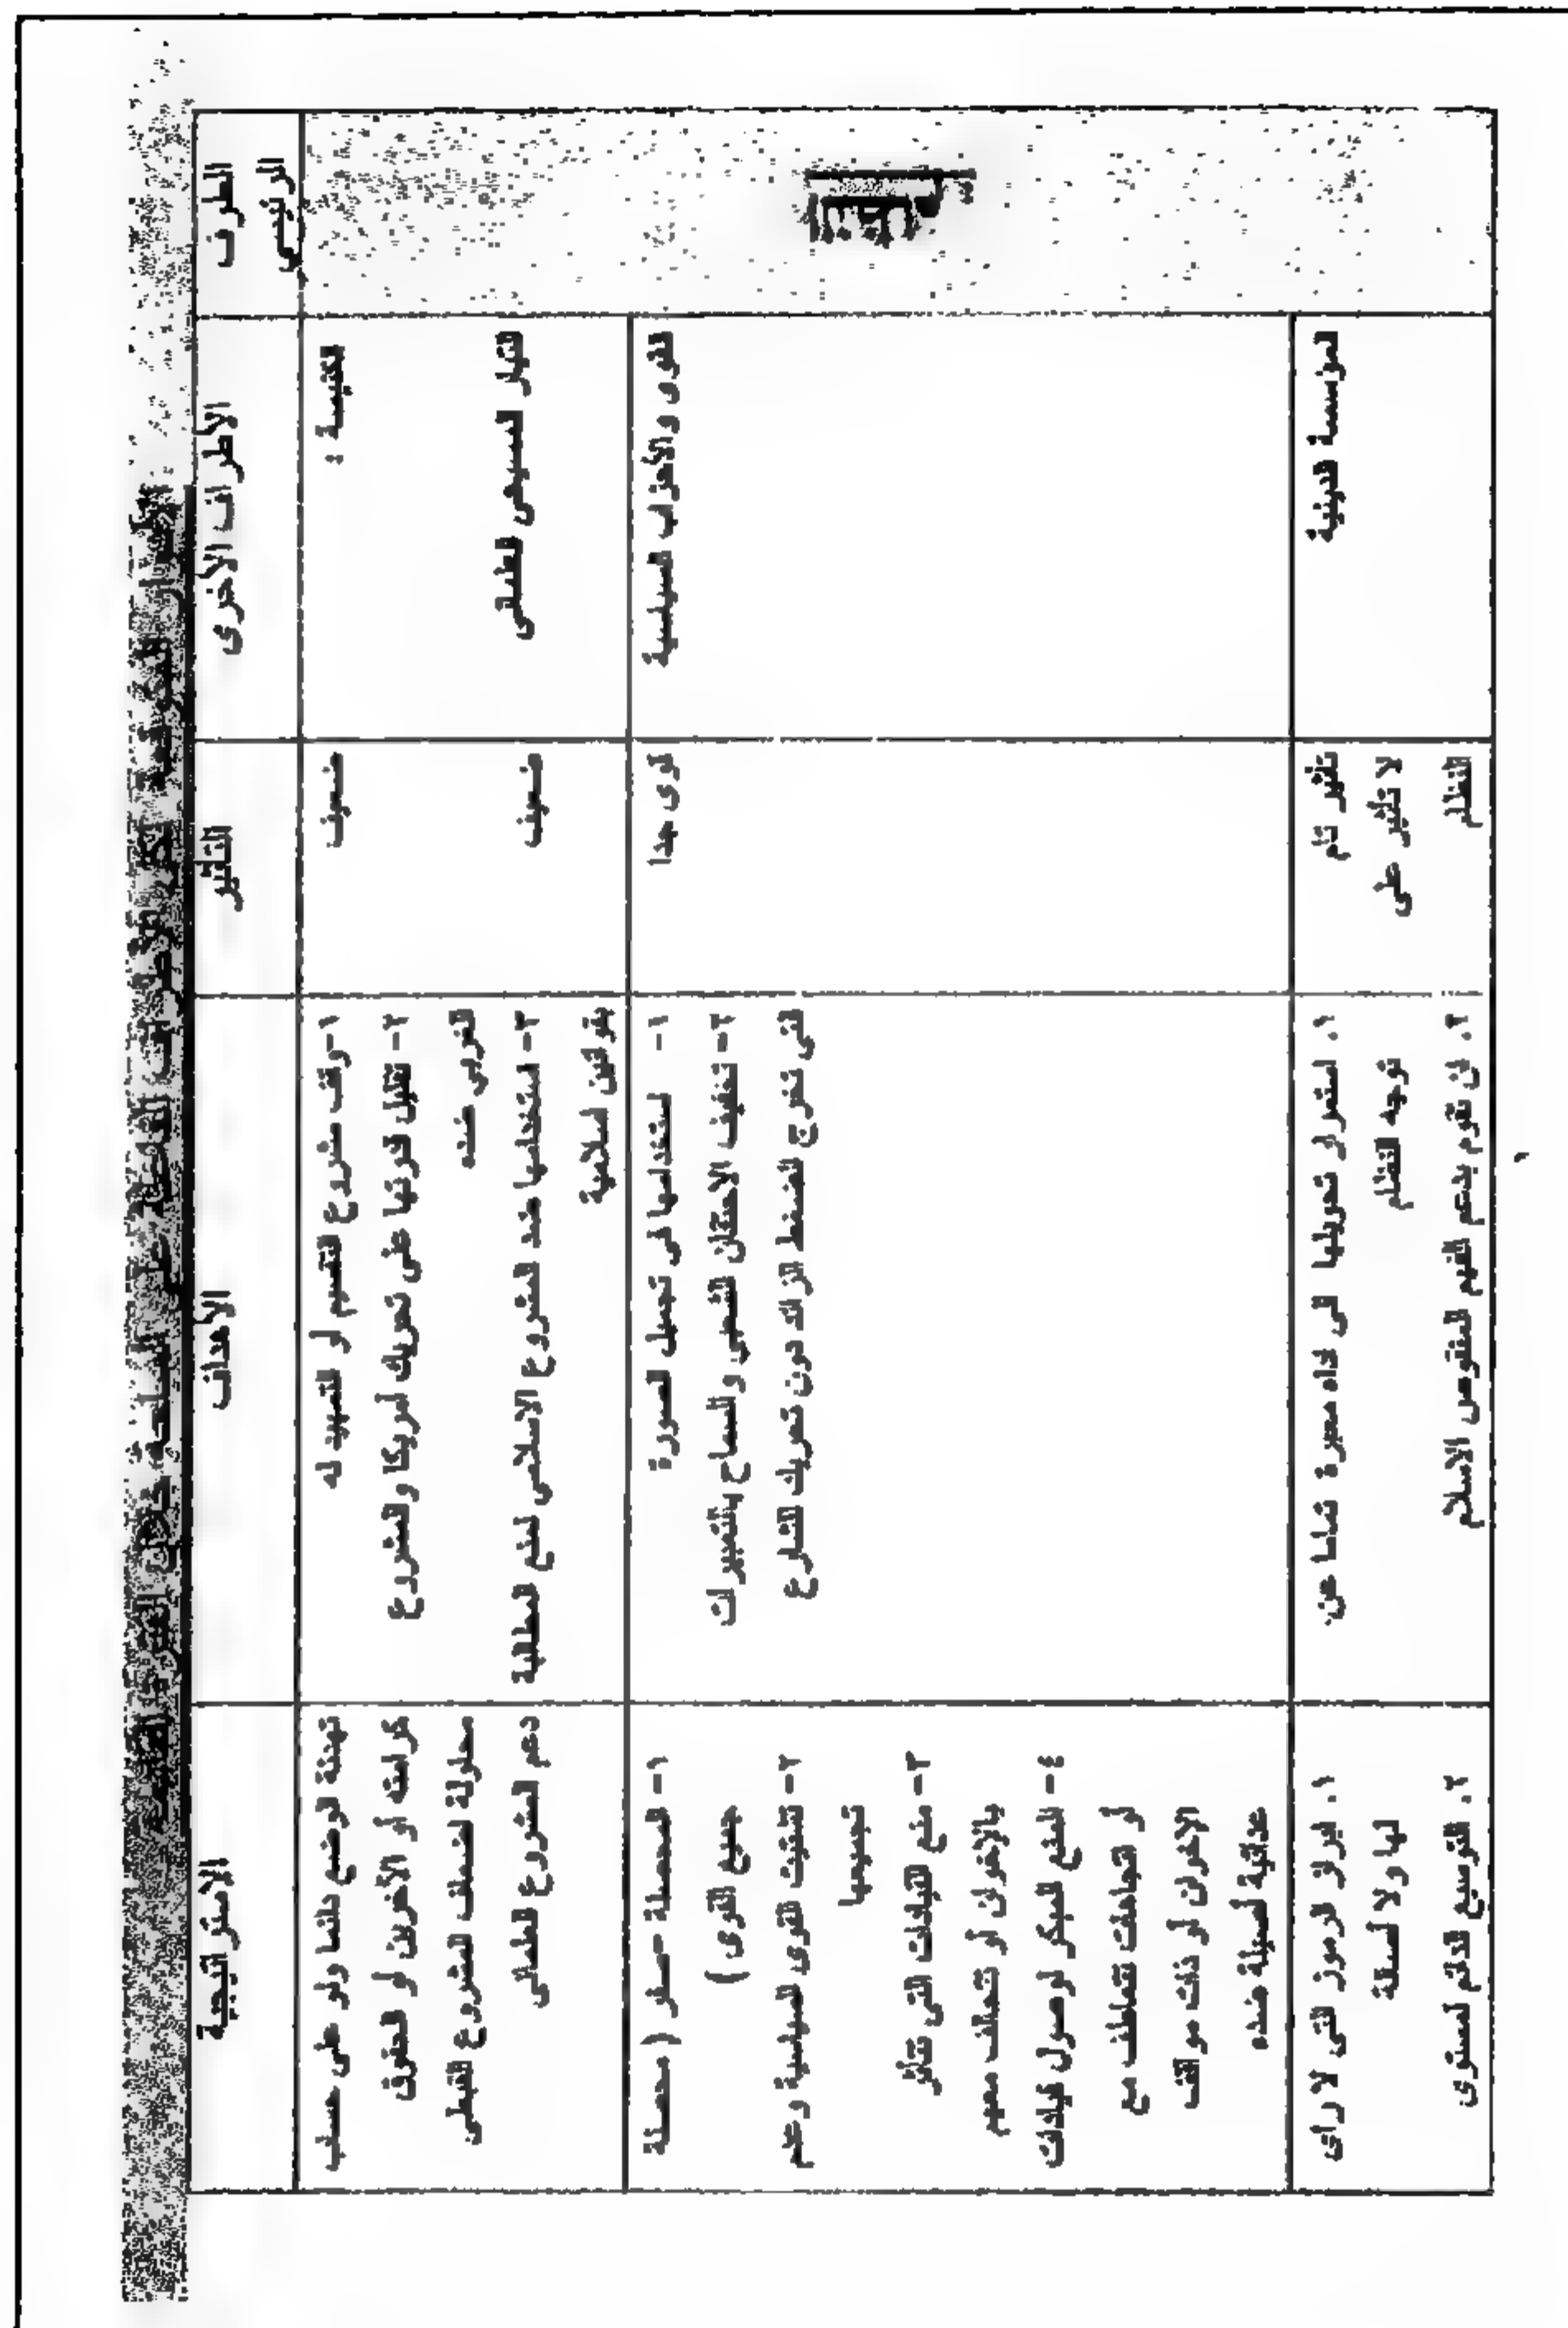 الطرف
الرئيسي
الأطراف الأخرى
التأثير
الأهداف
الاستراتيجية
الكنيسة :
ضعيف
١- وقف مشروع التقسيم أو التمهيد له
٢- تقليل قدرتها على تحريك أمريكا والمشروع
الغربي ضده
تهدئة الوضع دائما ولو على حساب
كرامته أو الآخرين أو الحقوق
محاولة اضعاف المشروع القبطى
التيار المسيحى العلمانى
ضعيف
٣- استخدامها ضد المشروع الاسلامى لمنع المطالبة
بقوانين اسلامية
دعم المشروع العلمانى
القوى والأحزاب السياسية
قوى جدا
١- استخدامها فى تجميل الصورة
٢- تخفيف الاحتقان الشعبى والسماح بالتعبيرات
التى تخرج الضغط الزائد دون تحريك الشارع
١- المحصلة - صفر ( محصلة
جميع القوى )
٢- تفتيت القوى السياسية وعدم
تجميعها
٣- منع القيادات التى تتأثر
بالإخوان أو تتحالف معهم
٤- المنع المبكر لوصول قيادات
أو اتجاهات تتعاطف مع
الإخوان أو ذات مواقف
عدائية أصيلة ضده
المؤسسة الدينية
تأثير تام
لا تأثير على
النظام
١. استمرار تحويلها الى اداه معبرة تماما عن
توجه النظام
٢. ان تقوم بدعم الفهم المنقوص الاسلام
١. ابراز الرموز التى لا رأى
لها ولا
٢. التوسيع الدائم لمستوى